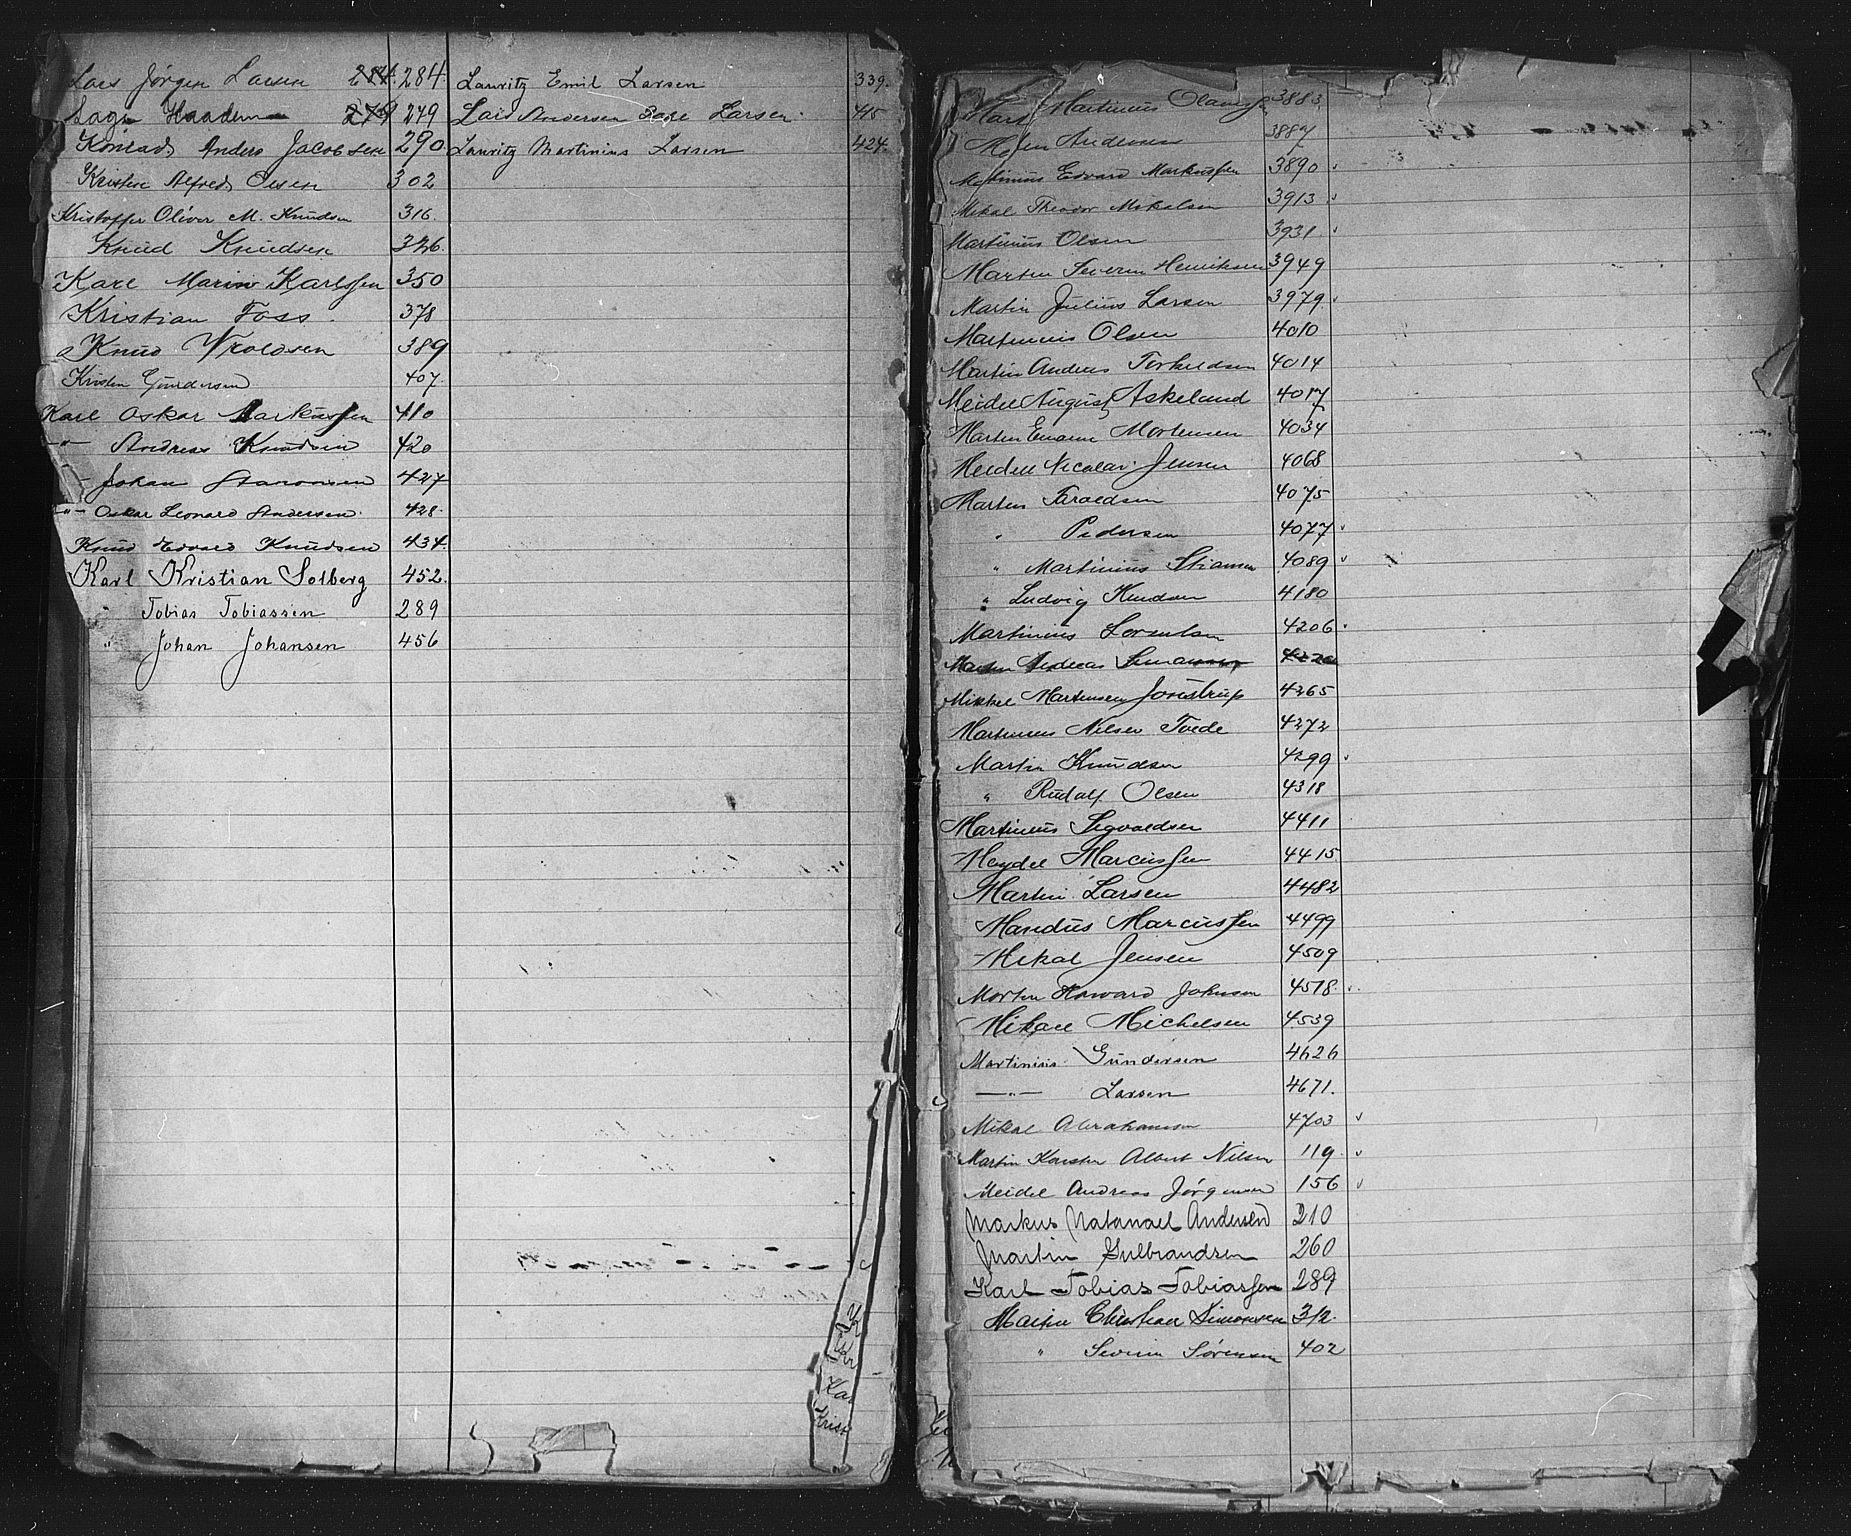 Lars Jørgen Larsen 284. 284.
Aage Haadem 279 279
Konrad Anders Jacobsen 290
Kristen Alfred Olsen 302
Kristoffer Oliver M. Knudsen 316.
Knud Knudsen 326
Karl Marius Karlssen 350
Kristian Foss. 378
Knud Wroldsen 389
Kristen Gundersen 407.
Karl Oskar Markussen 410
-"- Andreas Knudsen 420
- Johan Aanonsen 427
-"- Oskar Leonard Andersen. 428.
Knud Edvard Knudsen 434.
Karl Kristian Solberg 452.
" Tobias Tobiassen 289
" Johan Johansen 456
Lauritz Emil Larsen 339.
Lars Andersen Larsen. 415
Lauritz Martinius Larsen 424.
Martinius Olaussen 3883
Andersen 3887
Martinius Edvard Markussen 3890
Mikal Theodor Mikalsen 3913
Martinius Olsen 3931
Martin Severin Henriksen 3949
Martin Julius Larsen 3979
Martinius Olsen 4010
Martin Andreas Terkeldsen 4014
Meidel August Askeland 4017
Martin Emanu Mortensen 4034
Meidell Nicolai Jensen 4068
Martin Taraldsen 4075
" Pedersen 4077
" Martinius Stiansen 4089
" Ludvig Knudsen 4180
Martinius Lorentsen 4206
Martin Andreas 4220
Mikkel Martensen Jonstrup 4265
Martinius Nilsen Tvede 4272
Martin Knudsen 4299
" Rudolf Olsen 4318
Martinius Sigvaldsen 4411
Meydel Marcussen 4415
Martin Larsen 4482
Mandius Marcussen 4499
Mikal Jensen 4509
Morten Howard Johnson 4518
Mikael Michelsen 4539
Martinius Gundersen 4626
—"— Larsen 4671.
Mikal Abrahamsen 4703
Martin Karsten Albert Nilsen 119
Meidel Andreas Jørgensen 156
Markus Natanael Andersen 210
Martin Gulbrandsen 260
Karl Tobias Tobiassen 289
Martin Christian Simonsen 312.
" Severin Sørensen 402
Ka
Krist